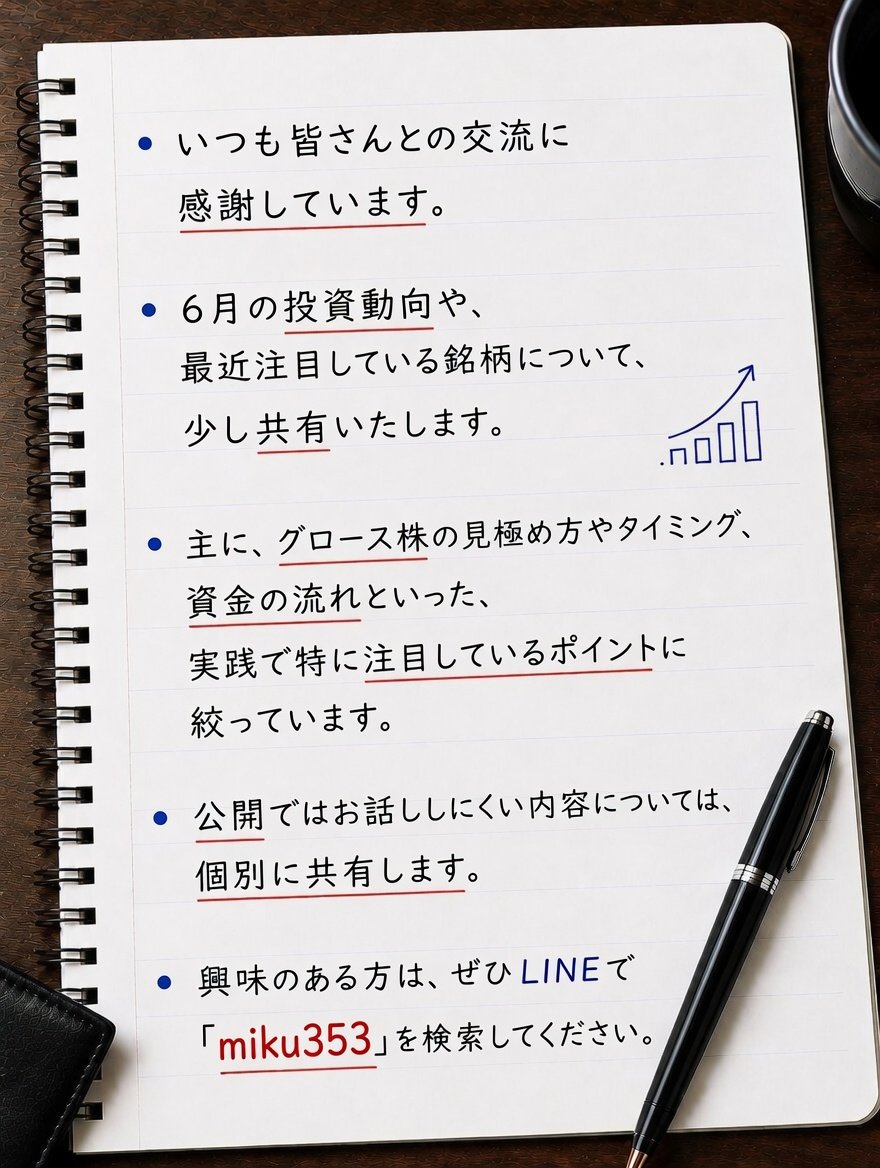 いつも皆さんとの交流に
感謝しています。
6月の投資動向や、
最近注目している銘柄について、
少し共有いたします。
主に、グロース株の見極め方やタイミング、
資金の流れといった、
実践で特に注目しているポイントに
絞っています。
公開ではお話ししにくい内容については、
個別に共有します。
興味のある方は、ぜひLINEで
「miku353」を検索してください。